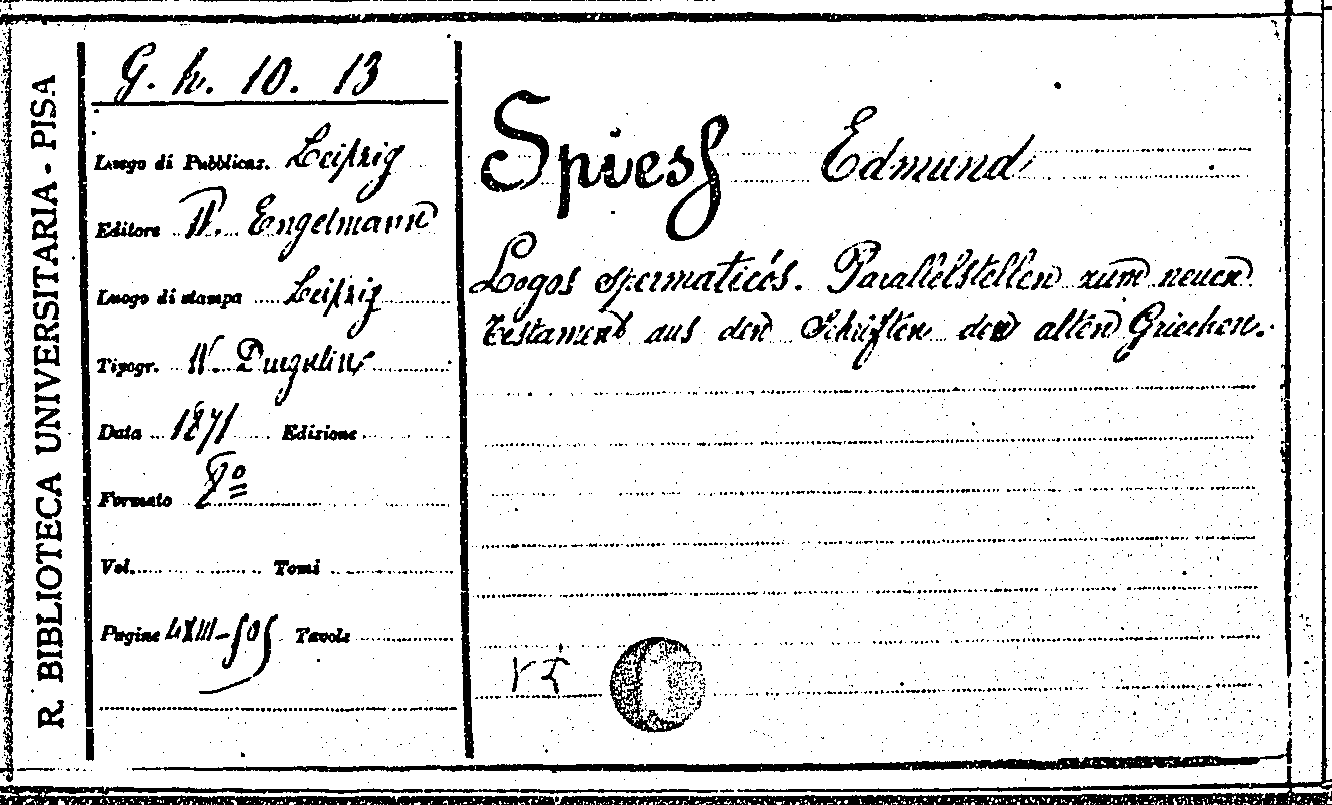 R. BIBLIOTECA UNIVERSITARIA - PISA
G. h. 10. 13
Luogo di Pubblicaz. Leipzig
Editore W. Engelmann
Luogo di stampa Leipzig
Tipogr. W. Drugulin
Data 1871 Edizione
Formato 8º
Vol. Tomi
Pagine LXIII-505 Tavole
Spiess Edmund
Logos spermaticós. Parallelstellen zum neuen
Testament aus den Schriften der alten Griechen.